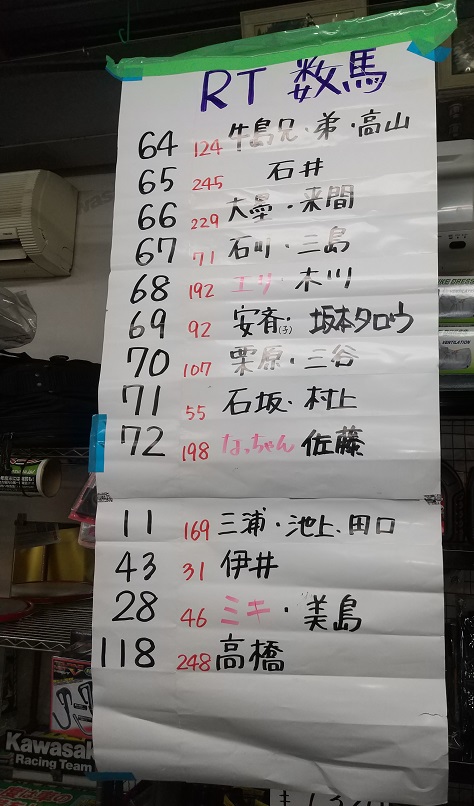 RT 数馬
64 124 牛島兄・弟・高山
65 245 石井
66 229 大曇・来間
67 71 石川・三島
68 192 エリ・木川
69 92 安斉(子)・坂本タロウ
70 107 栗原・三谷
71 55 石坂・村上
72 198 なっちゃん 佐藤
11 169 三浦・池上、田口
43 31 伊井
28 46 ミキ・美島
118 248 高橋
Kawasaki
Racing Team